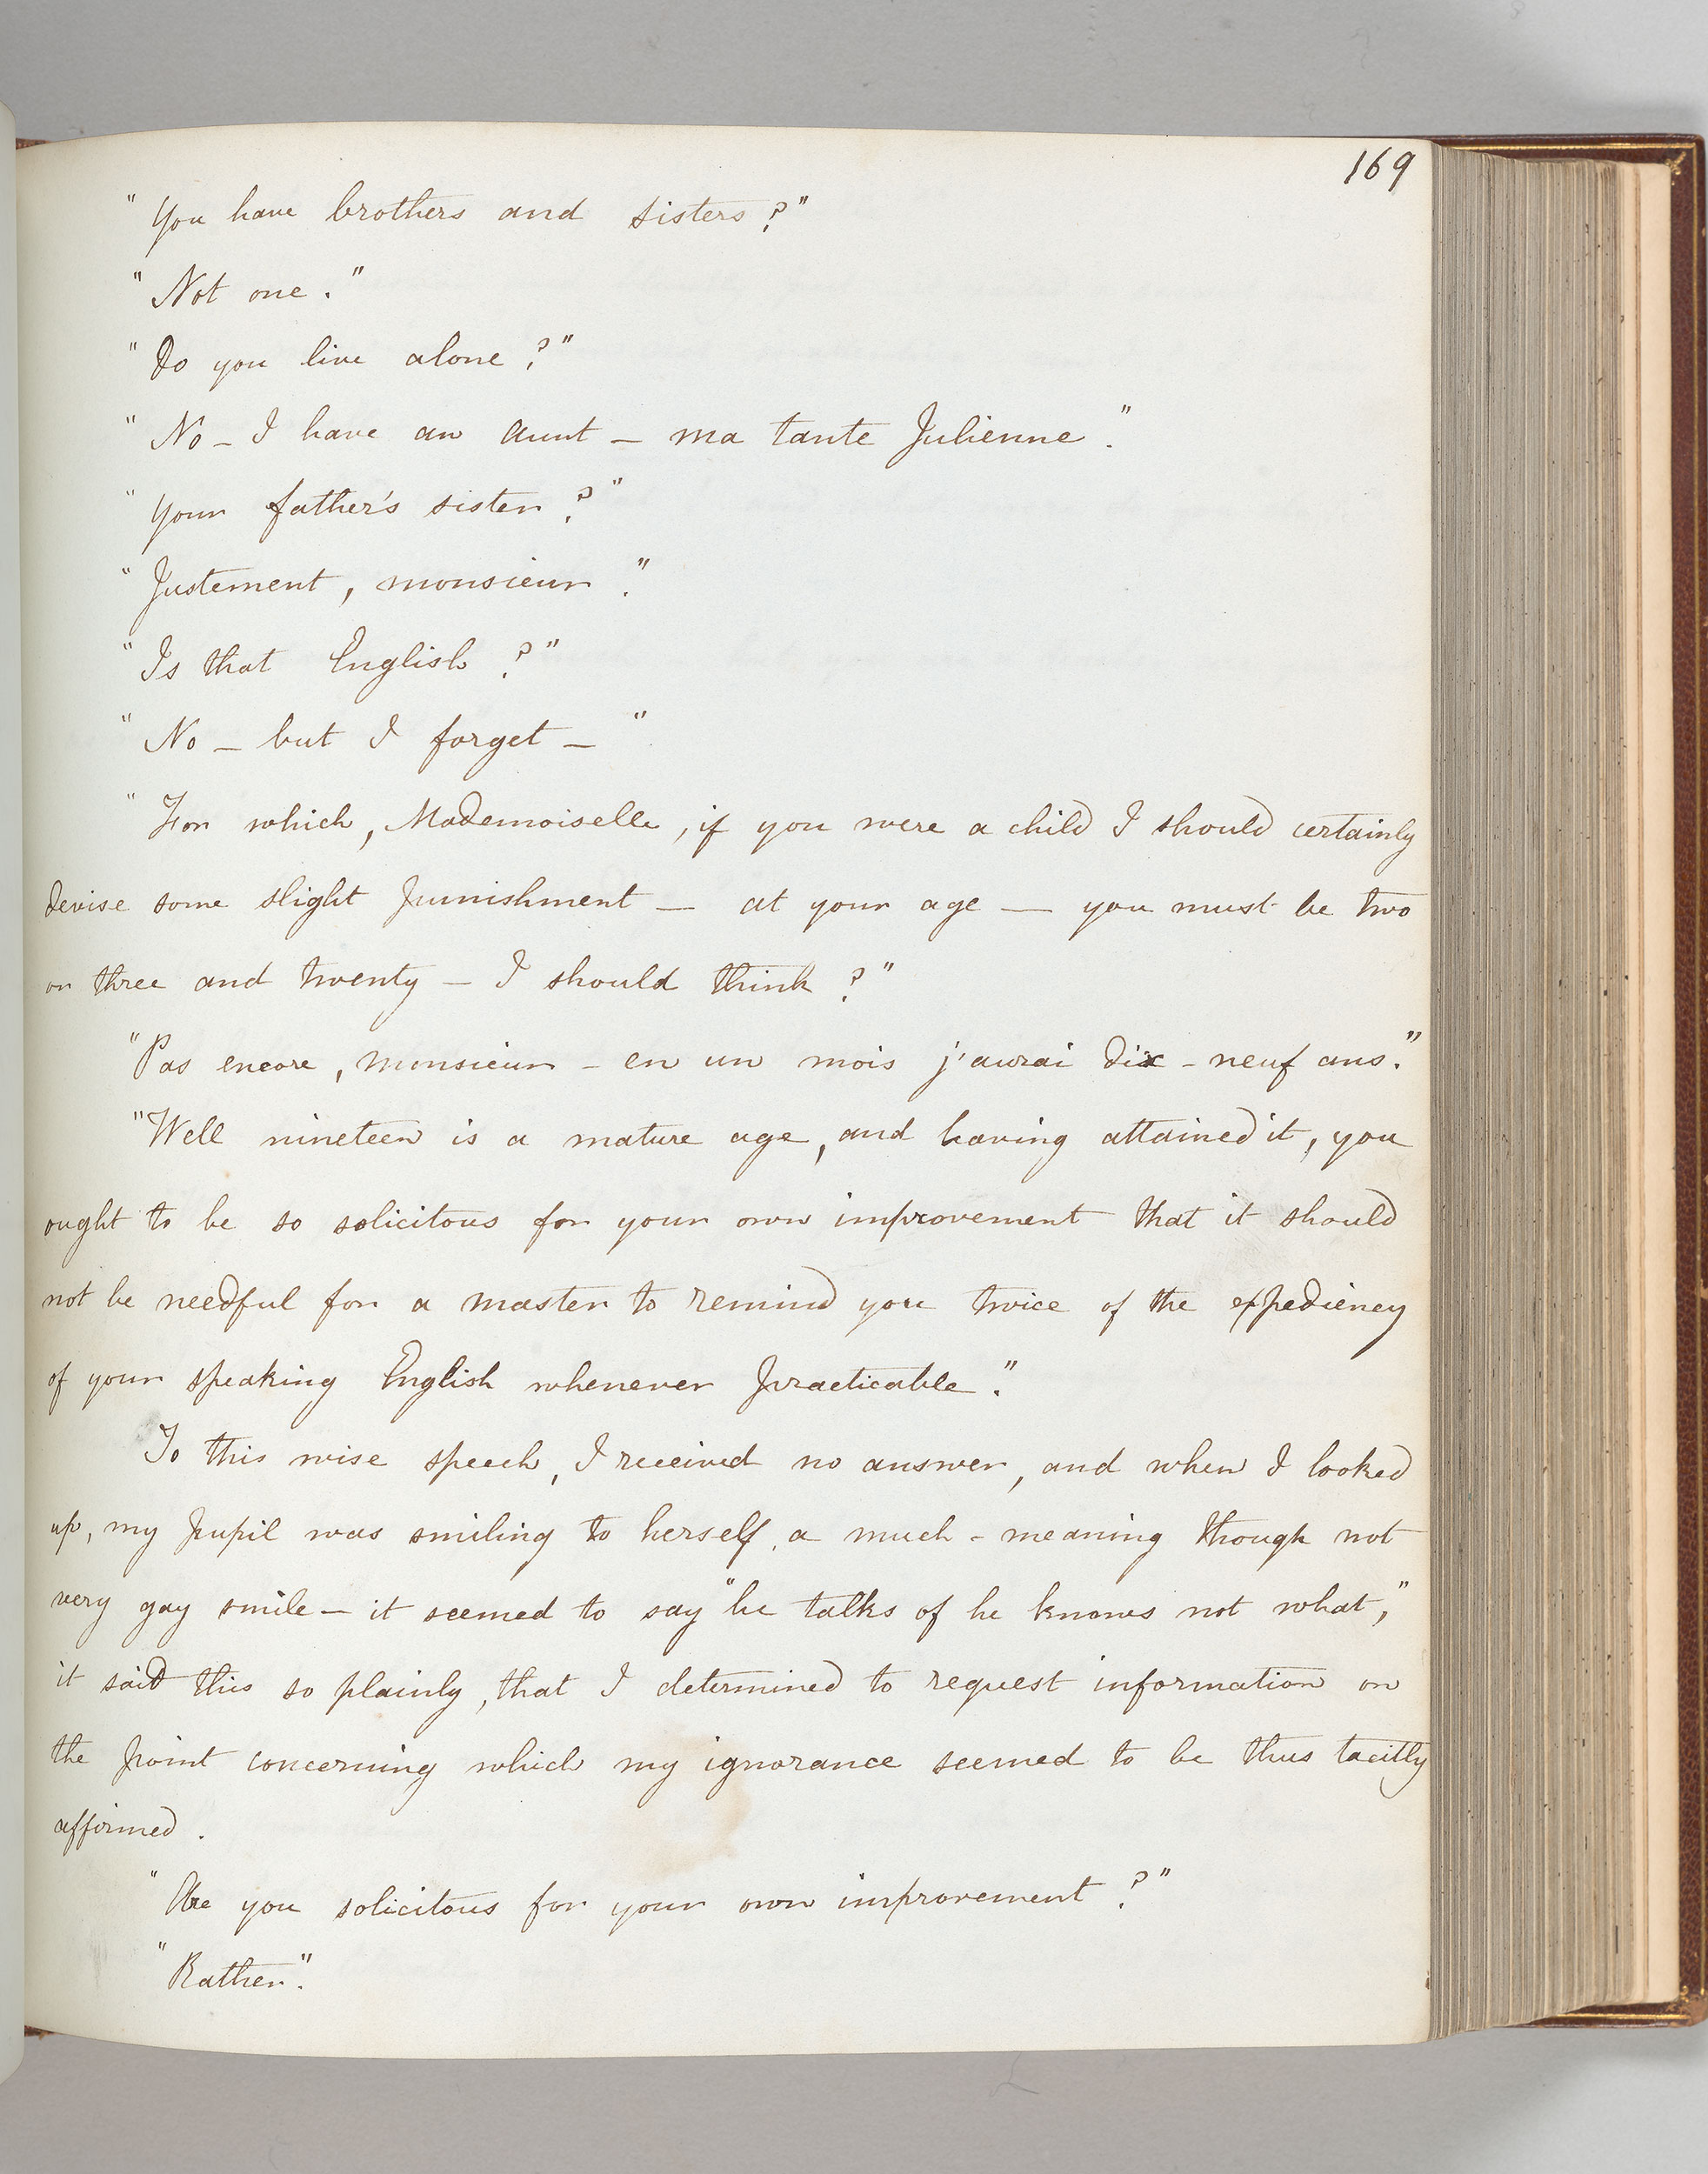 169
"You have brothers and sisters?"
"Not one."
"Do you live alone?"
"No – I have an aunt – ma tante Julienne."
"Your father's sister?"
"Justement, monsieur."
"Is that English?"
"No – but I forget – "
"For which, Mademoiselle, if you were a child I should certainly
devise some slight punishment — at your age — you must be two
or three and twenty – I should think?"
"Pas encore, monsieur – en un mois j'aurai dix-neuf ans."
"Well nineteen is a mature age, and having attained it, you
ought to be so solicitous for your own improvement that it should
not be needful for a master to remind you twice of the expediency
of your speaking English whenever practicable."
To this wise speech, I received no answer, and when I looked
up, my pupil was smiling to herself, a much-meaning though not
very gay smile – it seemed to say "he talks of he knows not what,"
it said this so plainly, that I determined to request information on
the point concerning which my ignorance seemed to be thus tacitly
affirmed.
"Are you solicitous for your own improvement?"
"Rather".